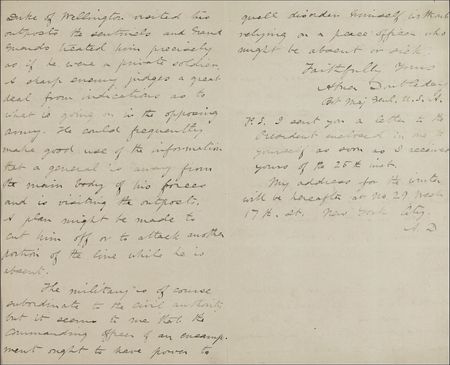 Duke of Wellington visited his
outposts the sentinels and Grand
Guards treated him precisely
as if he were a private soldier.
A sharp enemy judges a great
deal from indications as to
what is going on in the opposing
army. He could frequently
make good use of the information
that a general is away from
the main body of his forces
and is visiting the outposts.
A plan might be made to
cut him off or to attack another
portion of the line while he is
absent.
The military is of course
subordinate to the civil authority
but it seems to me that the
Commanding officer of an encamp-
ment ought to have power to
quell disorder himself without
relying on a peace officer who
might be absent or sick.
Faithfully Yours
Abner Doubleday
Bvt Maj Genl, U.S.A.
P.S. I sent you a letter to the
President enclosed in one to
yourself as soon as I received
yours of the 25th inst.
My address for the winter
will be hereafter at No. 29 West
17th. st. New York City.
A D